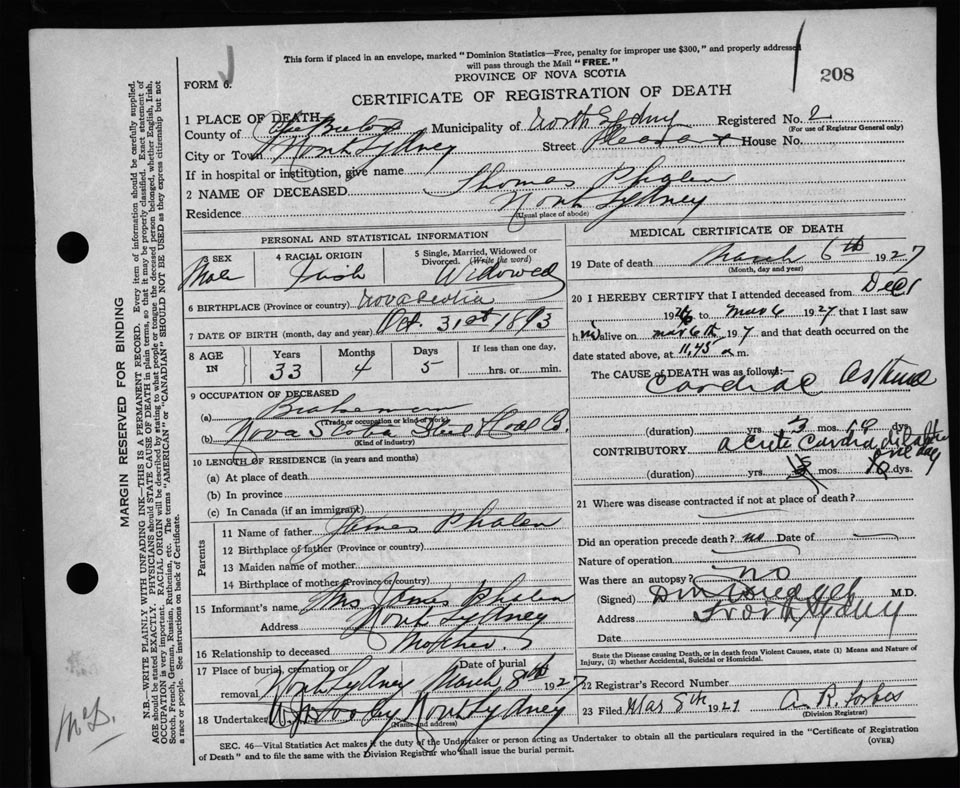 This form if placed in an envelope, marked "Dominion Statistics—Free, penalty for improper use $300," and properly addressed
will pass through the Mail "FREE."
FORM 6.
PROVINCE OF NOVA SCOTIA
208
CERTIFICATE OF REGISTRATION OF DEATH
1 PLACE OF DEATH
County of Cape Breton Municipality of North Sydney Registered No. 2
(For use of Registrar General only)
City or Town North Sydney Street Pleasant House No.
If in hospital or institution, give name
2 NAME OF DECEASED Thomas Phalen
Residence North Sydney
(Usual place of abode)
PERSONAL AND STATISTICAL INFORMATION
3 SEX 4 RACIAL ORIGIN 5 Single, Married, Widowed or Divorced. (Write the word)
Male Irish Widowed
6 BIRTHPLACE (Province or country) Nova Scotia
7 DATE OF BIRTH (month, day and year) Oct. 31st 1893
8 AGE IN Years Months Days If less than one day,
33 4 5 hrs. or min.
9 OCCUPATION OF DECEASED
(a) Brakeman
(Trade or occupation or kind of work)
(b) Nova Scotia Steel & Coal Co.
(Kind of industry)
10 LENGTH OF RESIDENCE (in years and months)
(a) At place of death
(b) In province
(c) In Canada (if an immigrant)
Parents
11 Name of father James Phalen
12 Birthplace of father (Province or country)
13 Maiden name of mother
14 Birthplace of mother (Province or country)
15 Informant's name Mrs James Phalen
Address North Sydney
16 Relationship to deceased Mother
17 Place of burial, cremation or removal North Sydney Date of burial March 8th 1927
18 Undertaker North Sydney
(Name and address)
MEDICAL CERTIFICATE OF DEATH
19 Date of death March 6th 1927
(Month, day and year)
20 I HEREBY CERTIFY that I attended deceased from Dec 1
1926 to Mar 6 1927 that I last saw
him alive on Mar 6th 1927 and that death occurred on the
date stated above, at 11.45 m.
The CAUSE of DEATH was as follows:—
Cardiac Asthma
(duration) yrs. 3 mos. dys.
CONTRIBUTORY acute cardiac dilatation
one day
(duration) yrs. mos. dys.
21 Where was disease contracted if not at place of death?
Did an operation precede death? no Date of
Nature of operation
Was there an autopsy? no
(Signed) M.D.
Address North Sydney
Date
State the Disease causing Death, or in death from Violent Causes, state (1) Means and Nature of
Injury, (2) whether Accidental, Suicidal or Homicidal.
22 Registrar's Record Number
23 Filed Mar 8th 1927 A. R. Forbes
(Division Registrar)
SEC. 46—Vital Statistics Act makes it the duty of the Undertaker or person acting as Undertaker to obtain all the particulars required in the "Certificate of Registration
of Death" and to file the same with the Division Registrar who shall issue the burial permit.
(OVER)
MARGIN RESERVED FOR BINDING
N.B.—WRITE PLAINLY WITH UNFADING INK—THIS IS A PERMANENT RECORD. Every item of information should be carefully supplied.
AGE should be stated EXACTLY. PHYSICIANS should STATE CAUSE OF DEATH in plain terms, so that it may be properly classified. Exact statement of
OCCUPATION is very important. RACIAL ORIGIN will be described by stating to what people or tongue the deceased person belonged, whether English, Irish,
Scotch, French, German, Russian, Ruthenian, etc. The terms "AMERICAN" or "CANADIAN" SHOULD NOT BE USED as they express citizenship but not
a race or people. See instructions on back of Certificate.
McD.